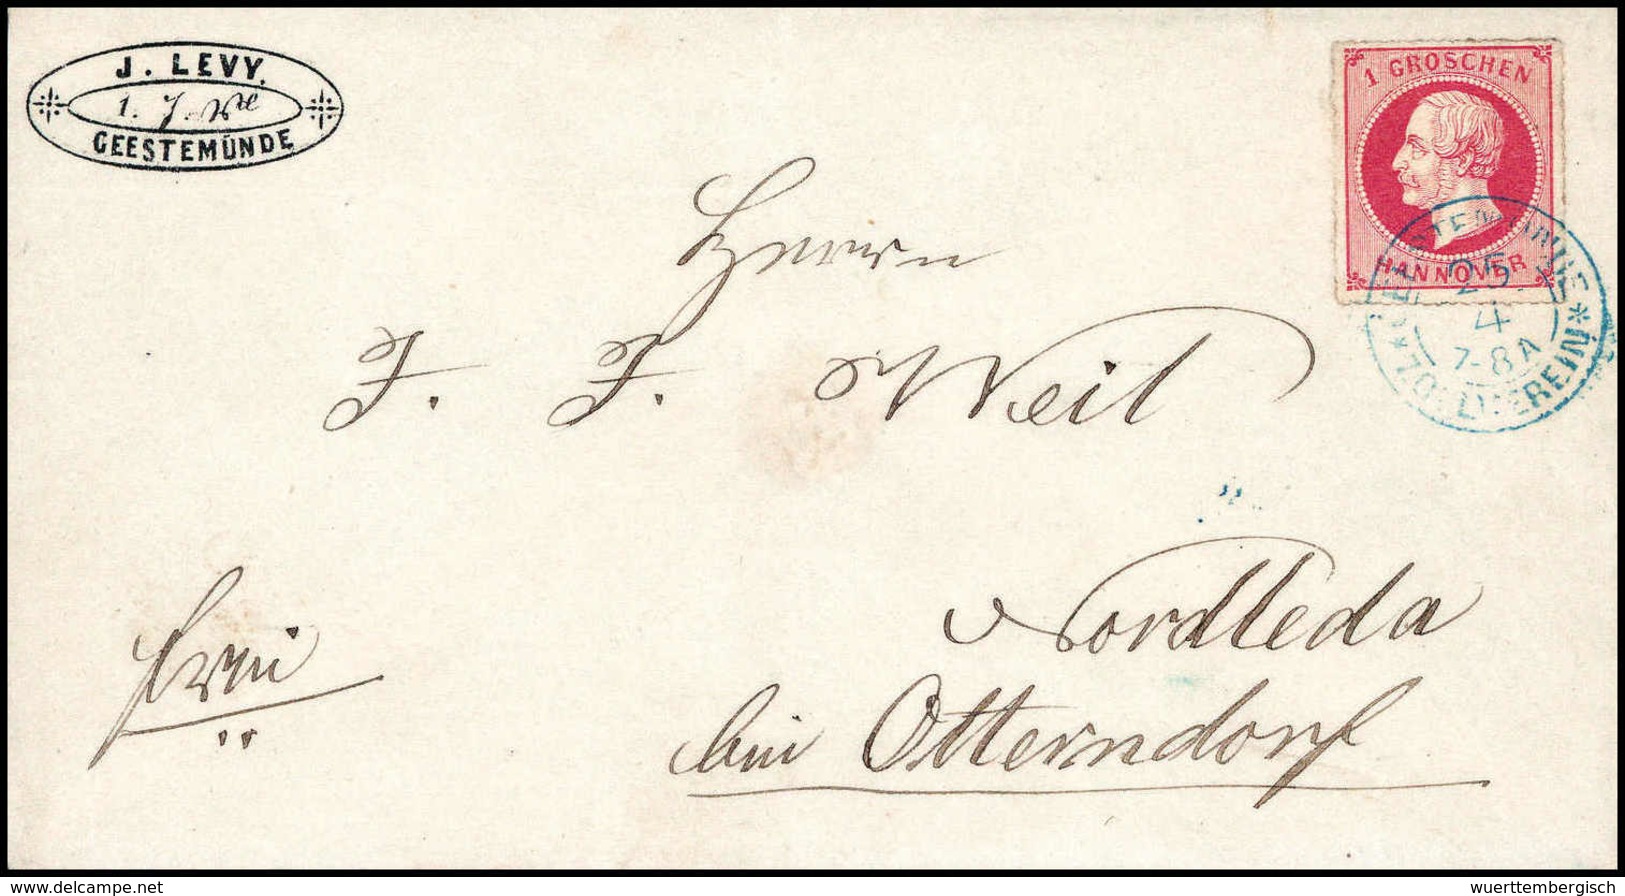 J. LEVY.
GEESTEMÜNDE
1 GROSCHEN
HANNOVER
GEESTEMÜNDE
25
4
7-8 A
* ZOLLVEREIN *
Herrn
J. J. Weil
frei
Nordleda
bei Otterndorf
delcampe.net
wuerttembergisch